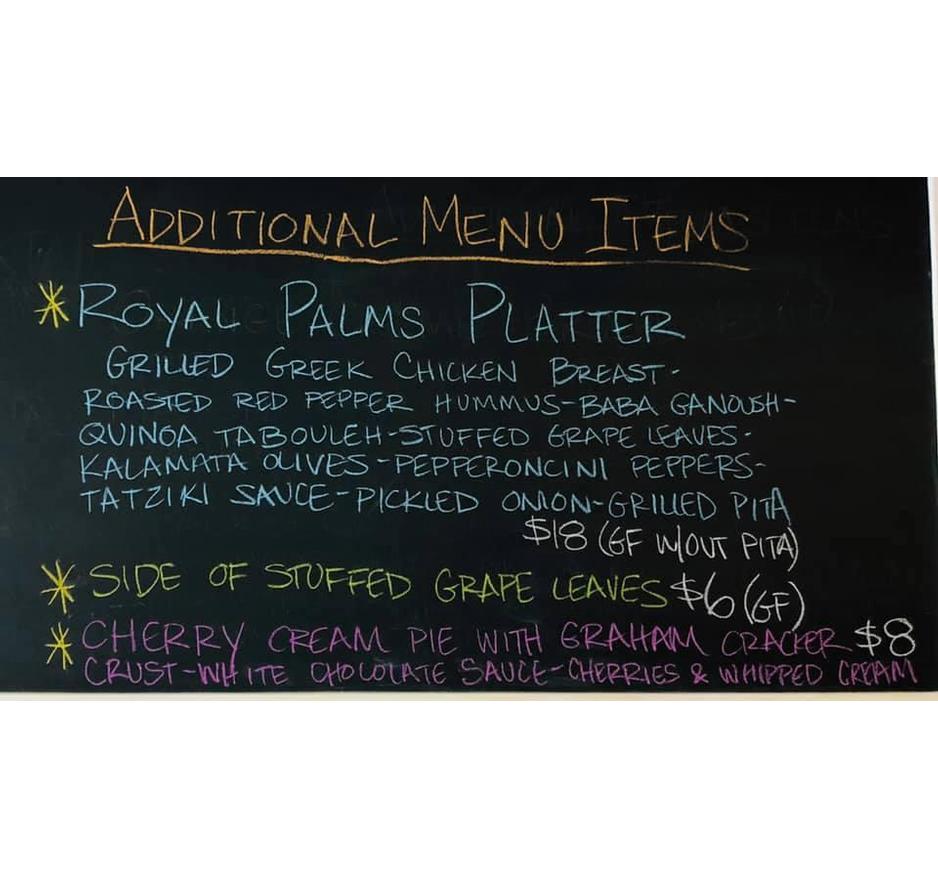 ADDITIONAL MENU ITEMS
* ROYAL PALMS PLATTER
GRILLED GREEK CHICKEN BREAST-
ROASTED RED PEPPER HUMMUS-BABA GANOUSH-
QUINOA TABOULEH-STUFFED GRAPE LEAVES-
KALAMATA OLIVES-PEPPERONCINI PEPPERS-
TATZIKI SAUCE-PICKLED ONION-GRILLED PITA
$18 (GF W/OUT PITA)
* SIDE OF STUFFED GRAPE LEAVES $6 (GF)
* CHERRY CREAM PIE WITH GRAHAM CRACKER $8
CRUST-WHITE CHOCOLATE SAUCE-CHERRIES & WHIPPED CREAM